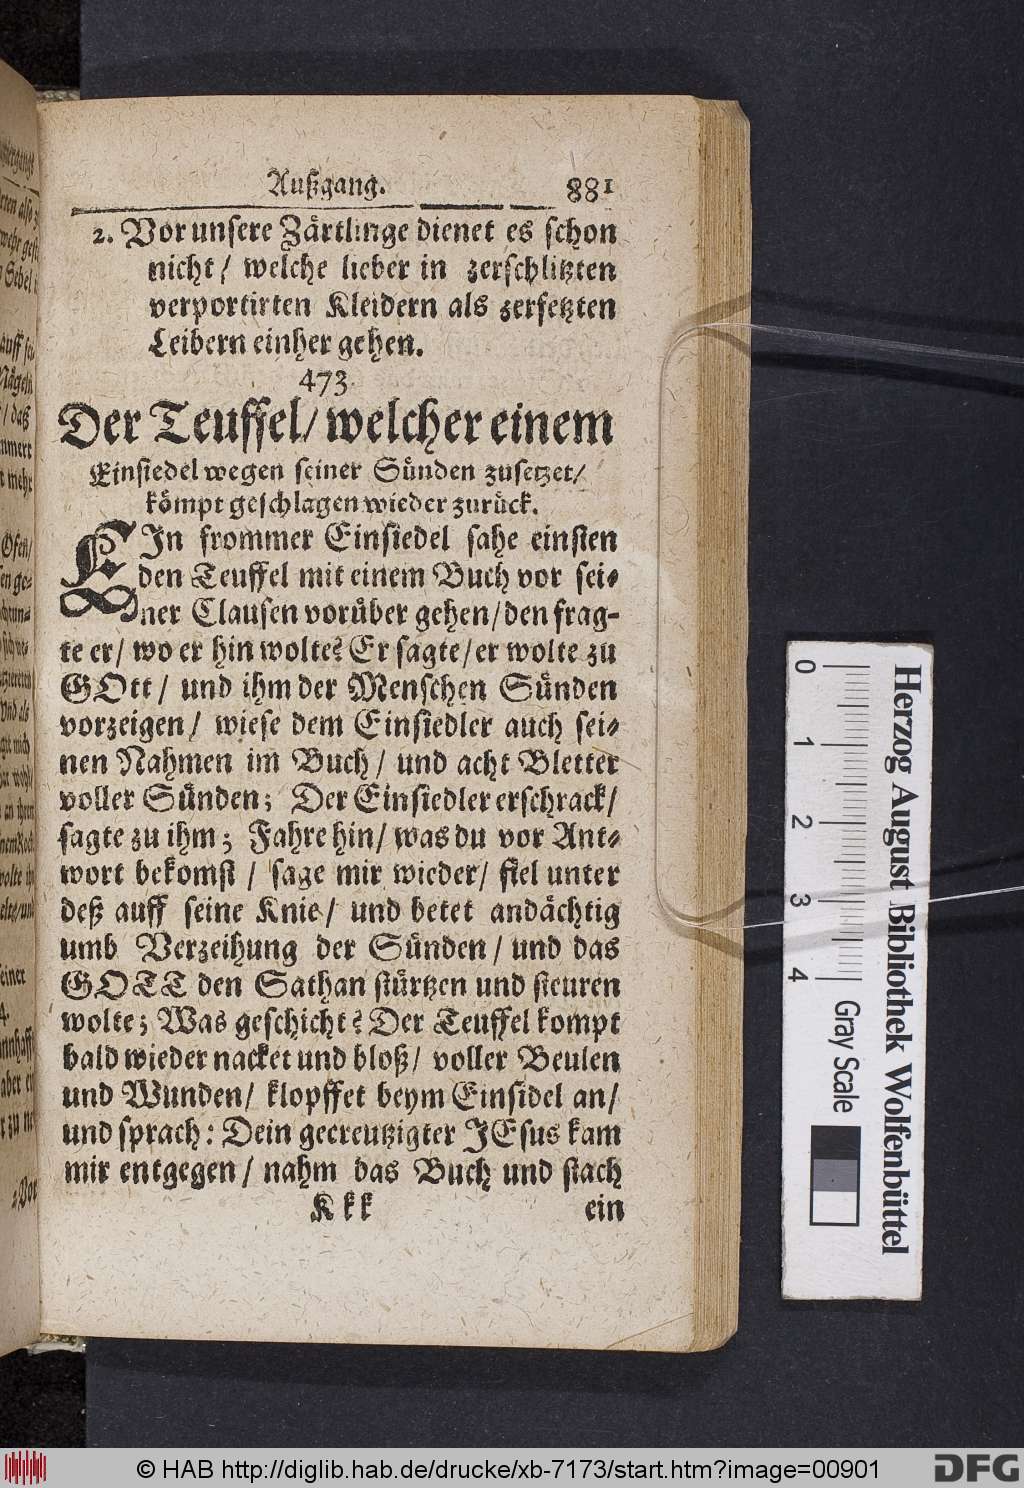 Außgang. 881
2. Vor unsere Zärtlinge dienet es schon
nicht / welche lieber in zerschlitzten
verportirten Kleidern als zerfetzten
Leibern einher gehen.
473.
Der Teuffel / welcher einem
Einsiedel wegen seiner Sünden zusetzet /
kömpt geschlagen wieder zurück.
EIn frommer Einsiedel sahe einsten
den Teuffel mit einem Buch vor sei-
ner Clausen vorüber gehen / den frag-
te er / wo er hin wolte? Er sagte / er wolte zu
GOtt / und ihm der Menschen Sünden
vorzeigen / wiese dem Einsiedler auch sei-
nen Nahmen im Buch / und acht Bletter
voller Sünden; Der Einsiedler erschrack /
sagte zu ihm; Fahre hin / was du vor Ant-
wort bekomst / sage mir wieder / fiel unter
deß auff seine Knie / und betet andächtig
umb Verzeihung der Sünden / und das
GOTT den Sathan stürtzen und steuren
wolte; Was geschicht? Der Teuffel kompt
bald wieder nacket und bloß / voller Beulen
und Wunden / klopffet beym Einsidel an /
und sprach: Dein gecreutzigter JEsus kam
mir entgegen / nahm das Buch und stach
Kkk ein
0 1 2 3 4
Gray Scale
Herzog August Bibliothek Wolfenbüttel
© HAB http://diglib.hab.de/drucke/xb-7173/start.htm?image=00901
DFG